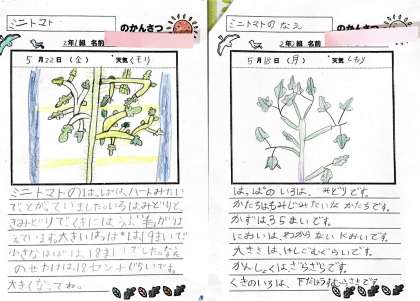 ミニトマト
のかんさつ
2年1組 名前
5月22日(金) 天気(くもり)
ミニトマトのはっぱは、ハートみたい
で、とがっていました。いろはみどりと、
きみどりで、くきには、うぶ毛がは
えています。大きいはっぱは19まいで
小さなはっぱは、18まいでした。なえ
のせたけは、18センチぐらいです。
大きくなってね。
ミニトマトのなえ
のかんさつ
2年1組 名前
5月18日(月) 天気(くもり)
はっぱのいろは、みどりです。
かたちはもみじみたいなかたちです。
かずは35まいです。
においは、わからないにおいです。
大きさは、けしごむぐらいです。
かんしょくは、ざらざらです。
くきのいろは、下だけうすむらさきです。